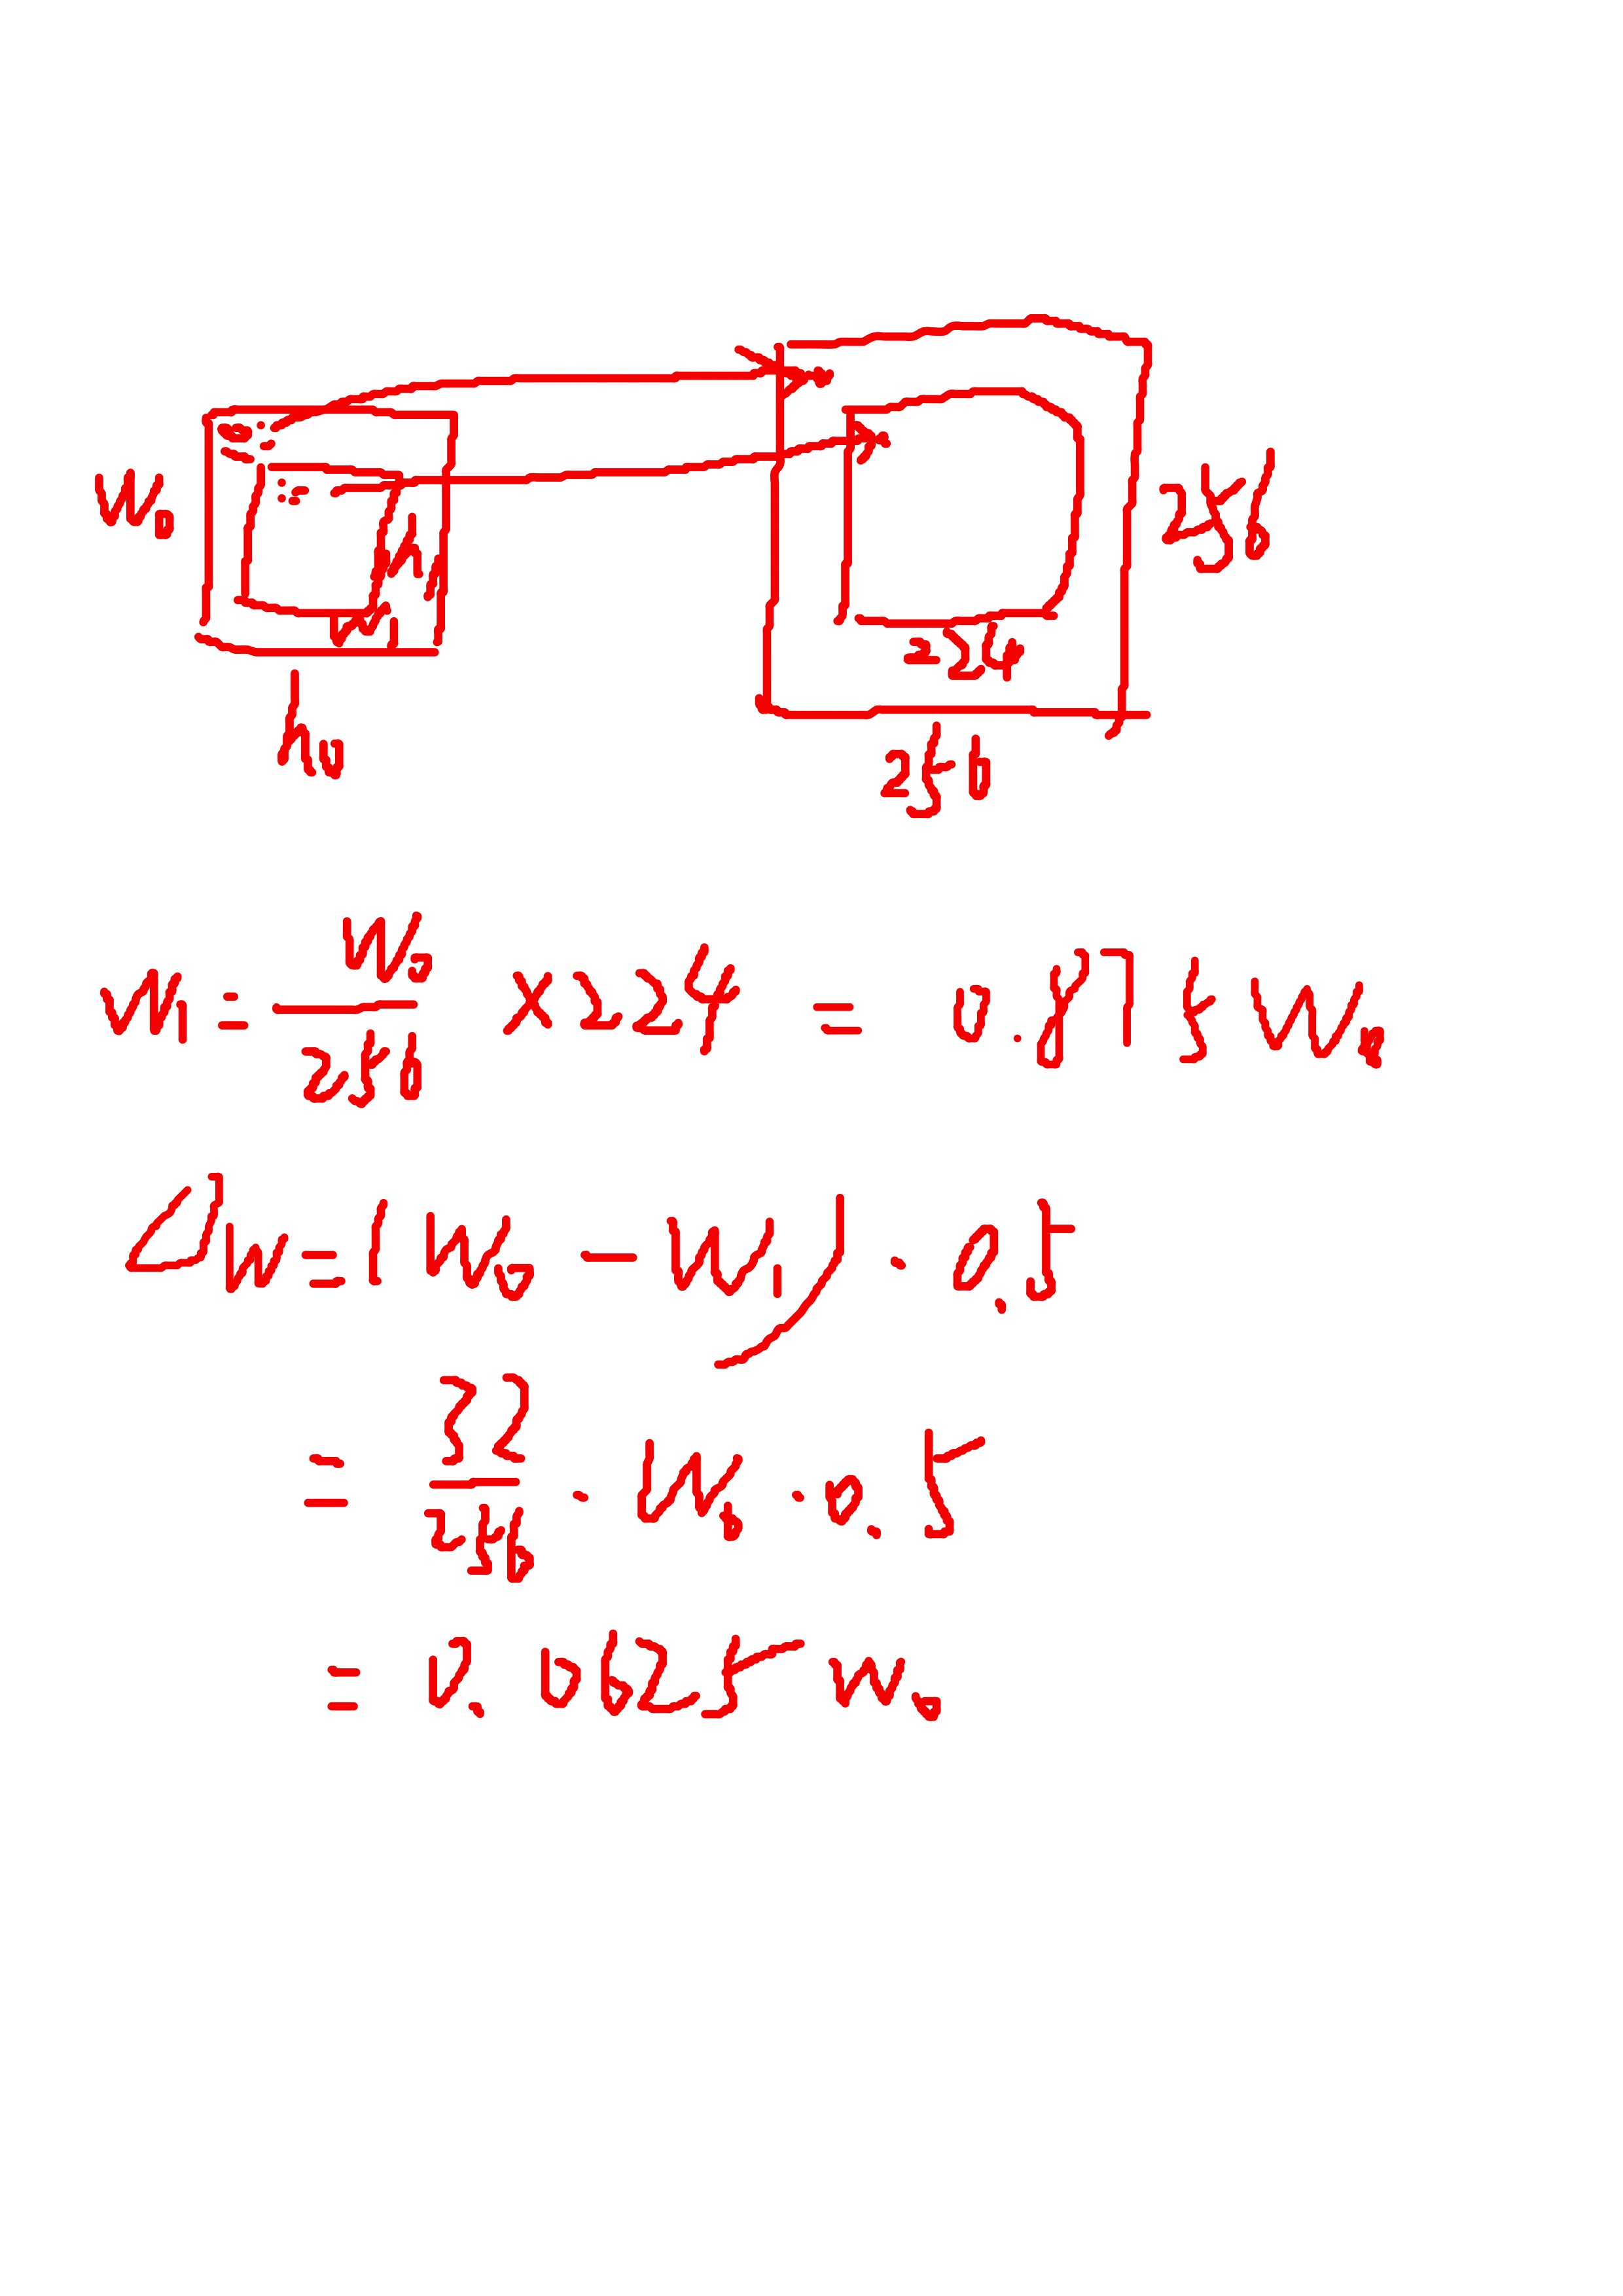 w₀
h₁
w₁
h₀
256
224
256
w₁ = w₀/256 × 224 = 0.875 w₀
Δw = (w₀ - w₁) · 0.5
= 32/256 · w₀ · 0.5
= 0.0625 w₀